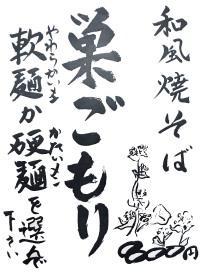 和風焼そば
巣ごもり
やわらかいま
軟麺か
かたいも
硬麺を選んで
下さい
800円